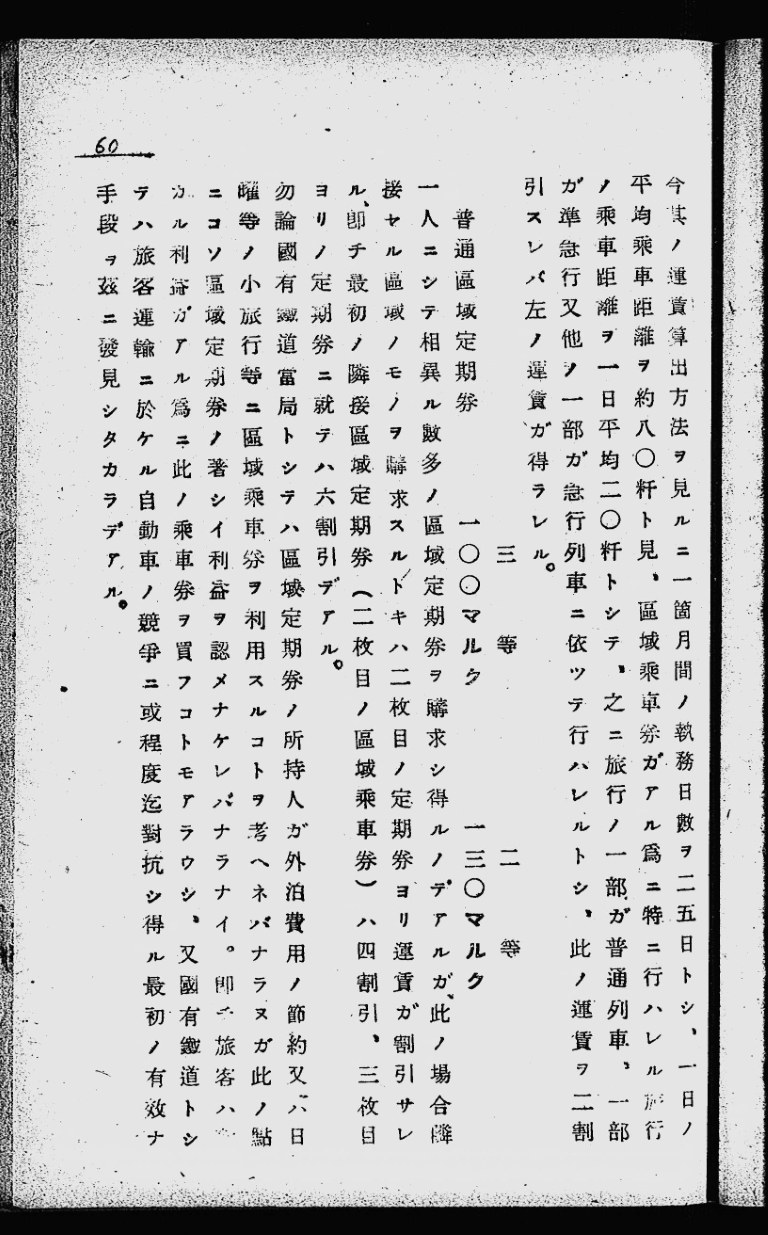 60
今其ノ運賃算出方法ヲ見ルニ一箇月間ノ執務日數ヲ二五日トシ、一日ノ
平均乘車距離ヲ約八〇粁ト見、區域乘車券ガアル爲ニ特ニ行ハレル旅行
ノ乘車距離ヲ一日平均二〇粁トシテ、之ニ旅行ノ一部ガ普通列車、一部
ガ準急行又他ノ一部ガ急行列車ニ依ツテ行ハレルトシ、此ノ運賃ヲ二割
引スレバ左ノ運賃ガ得ラレル。
三等 二等
普通區域定期券 一〇〇マルク 一三〇マルク
一人ニシテ相異ル數多ノ區域定期券ヲ購求シ得ルノデアルガ、此ノ場合隣
接セル區域ノモノヲ購求スルトキハ二枚目ノ定期券ヨリ運賃ガ割引サレ
ル、卽チ最初ノ隣接區域定期券(二枚目ノ區域乘車券)ハ四割引、三枚目
ヨリノ定期券ニ就テハ六割引デアル。
勿論國有鐵道當局トシテハ區域定期券ノ所持人ガ外泊費用ノ節約又ハ日
曜等ノ小旅行等ニ區域乘車券ヲ利用スルコトヲ考ヘネバナラヌガ此ノ點
ニコソ區域定期券ノ著シイ利益ヲ認メナケレバナラナイ。卽チ旅客ハ
カル利益ガアル爲ニ此ノ乘車券ヲ買フコトモアラウシ、又國有鐵道トシ
テハ旅客運輸ニ於ケル自動車ノ競爭ニ或程度迄對抗シ得ル最初ノ有效ナ
手段ヲ茲ニ發見シタカラデアル。